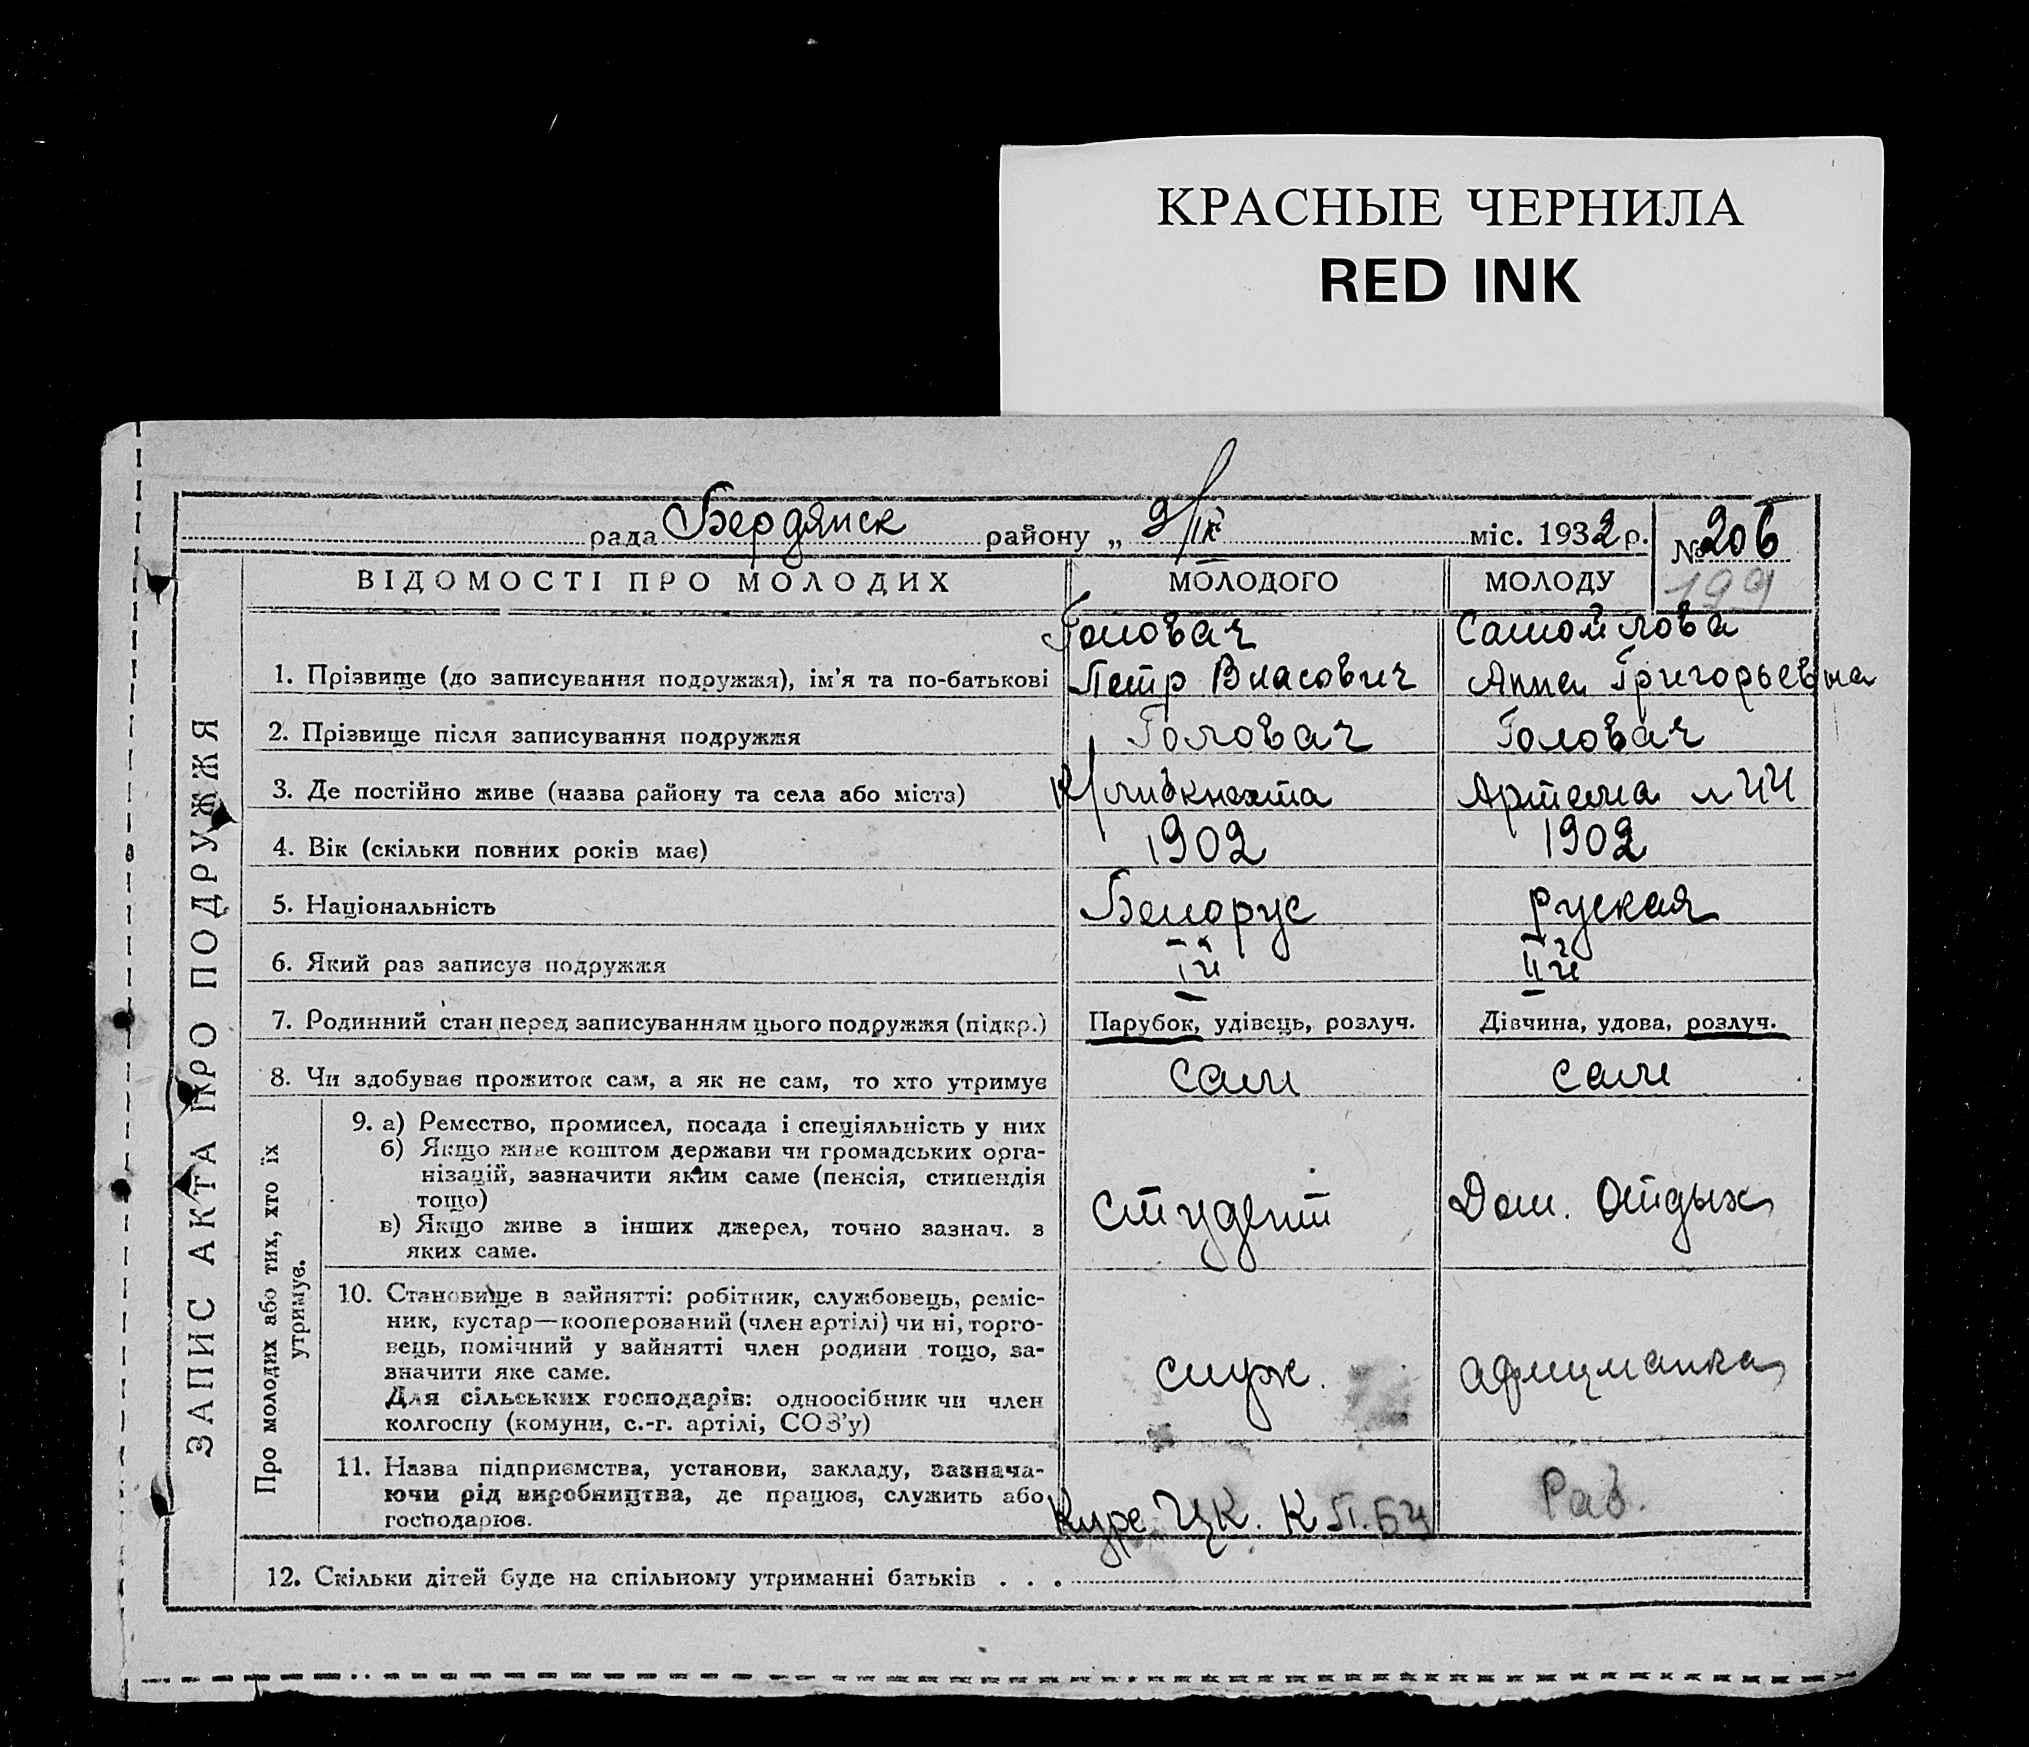 КРАСНЫЕ ЧЕРНИЛА
RED INK
рада Бердянск району „ 9/IX міс. 1932 р. № 206
199
ВІДОМОСТІ ПРО МОЛОДИХ МОЛОДОГО МОЛОДУ
Головач Самойлова
1. Прізвище (до записування подружжя), ім'я та по-батькові Петр Власович Анна Григорьевна
2. Прізвище після записування подружжя Головач Головач
3. Де постійно живе (назва району та села або міста) К/Либкнехта Артема 44
4. Вік (скільки повних років має) 1902 1902
5. Національність Белорус руская
6. Який раз записує подружжя Iй IIй
7. Родинний стан перед записуванням цього подружжя (підкр.) Парубок, удівець, розлуч. Дівчина, удова, розлуч.
8. Чи здобуває прожиток сам, а як не сам, то хто утримує сам сам
ЗАПИС АКТА ПРО ПОДРУЖЖЯ
Про молодих або тих, хто їх
утримує.
9. а) Ремество, промисел, посада і спеціяльність у них
б) Якщо живе коштом держави чи громадських орга-
нізацій, зазначити яким саме (пенсія, стипендія
тощо)
в) Якщо живе з інших джерел, точно зазнач. з
яких саме.
студент Дом. Отдых
10. Становище в зайнятті: робітник, службовець, реміс-
ник, кустар—кооперований (член артілі) чи ні, торго-
вець, помічний у зайнятті член родини тощо, за-
значити яке саме.
Для сільських господарів: одноосібник чи член
колгоспу (комуни, с.-г. артілі, СОЗ'у)
служ. афицианка
11. Назва підприємства, установи, закладу, зазнача-
ючи рід виробництва, де працює, служить або
господарює.
Курс ЦК. К П. Раб.
12. Скільки дітей буде на спільному утриманні батьків . . .